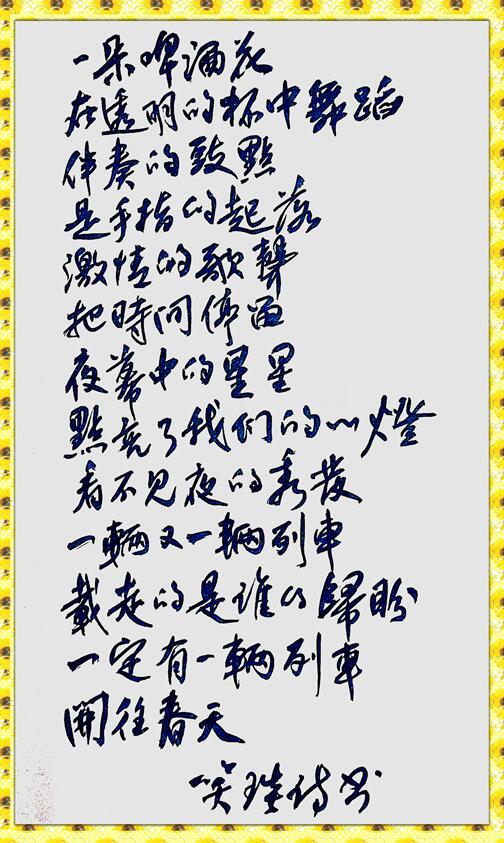 一朵啤酒花
在透明的杯中舞蹈
伴奏的鼓點
是手指的起落
激情的歌聲
把時间停留
夜幕中的星星
點亮了我们的心燈
看不见夜的秀發
一輛又一輛列車
載走的是谁的歸盼
一定有一輛列車
開往春天
书